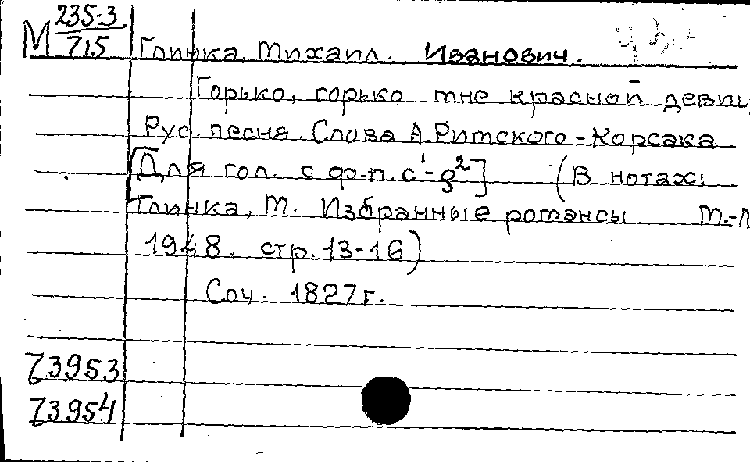 М 235-3
715
Глинка, Михаил. Иванович.
Горько, горько мне красной девиц
Рус. песня. Слова А. Римского-Корсака
[Для гол. с ф-п. c¹-g²] (В нотах:
Глинка, М. Избранные романсы М.-Л
1948. стр. 13-16)
Соч. 1827 г.
73953
73954